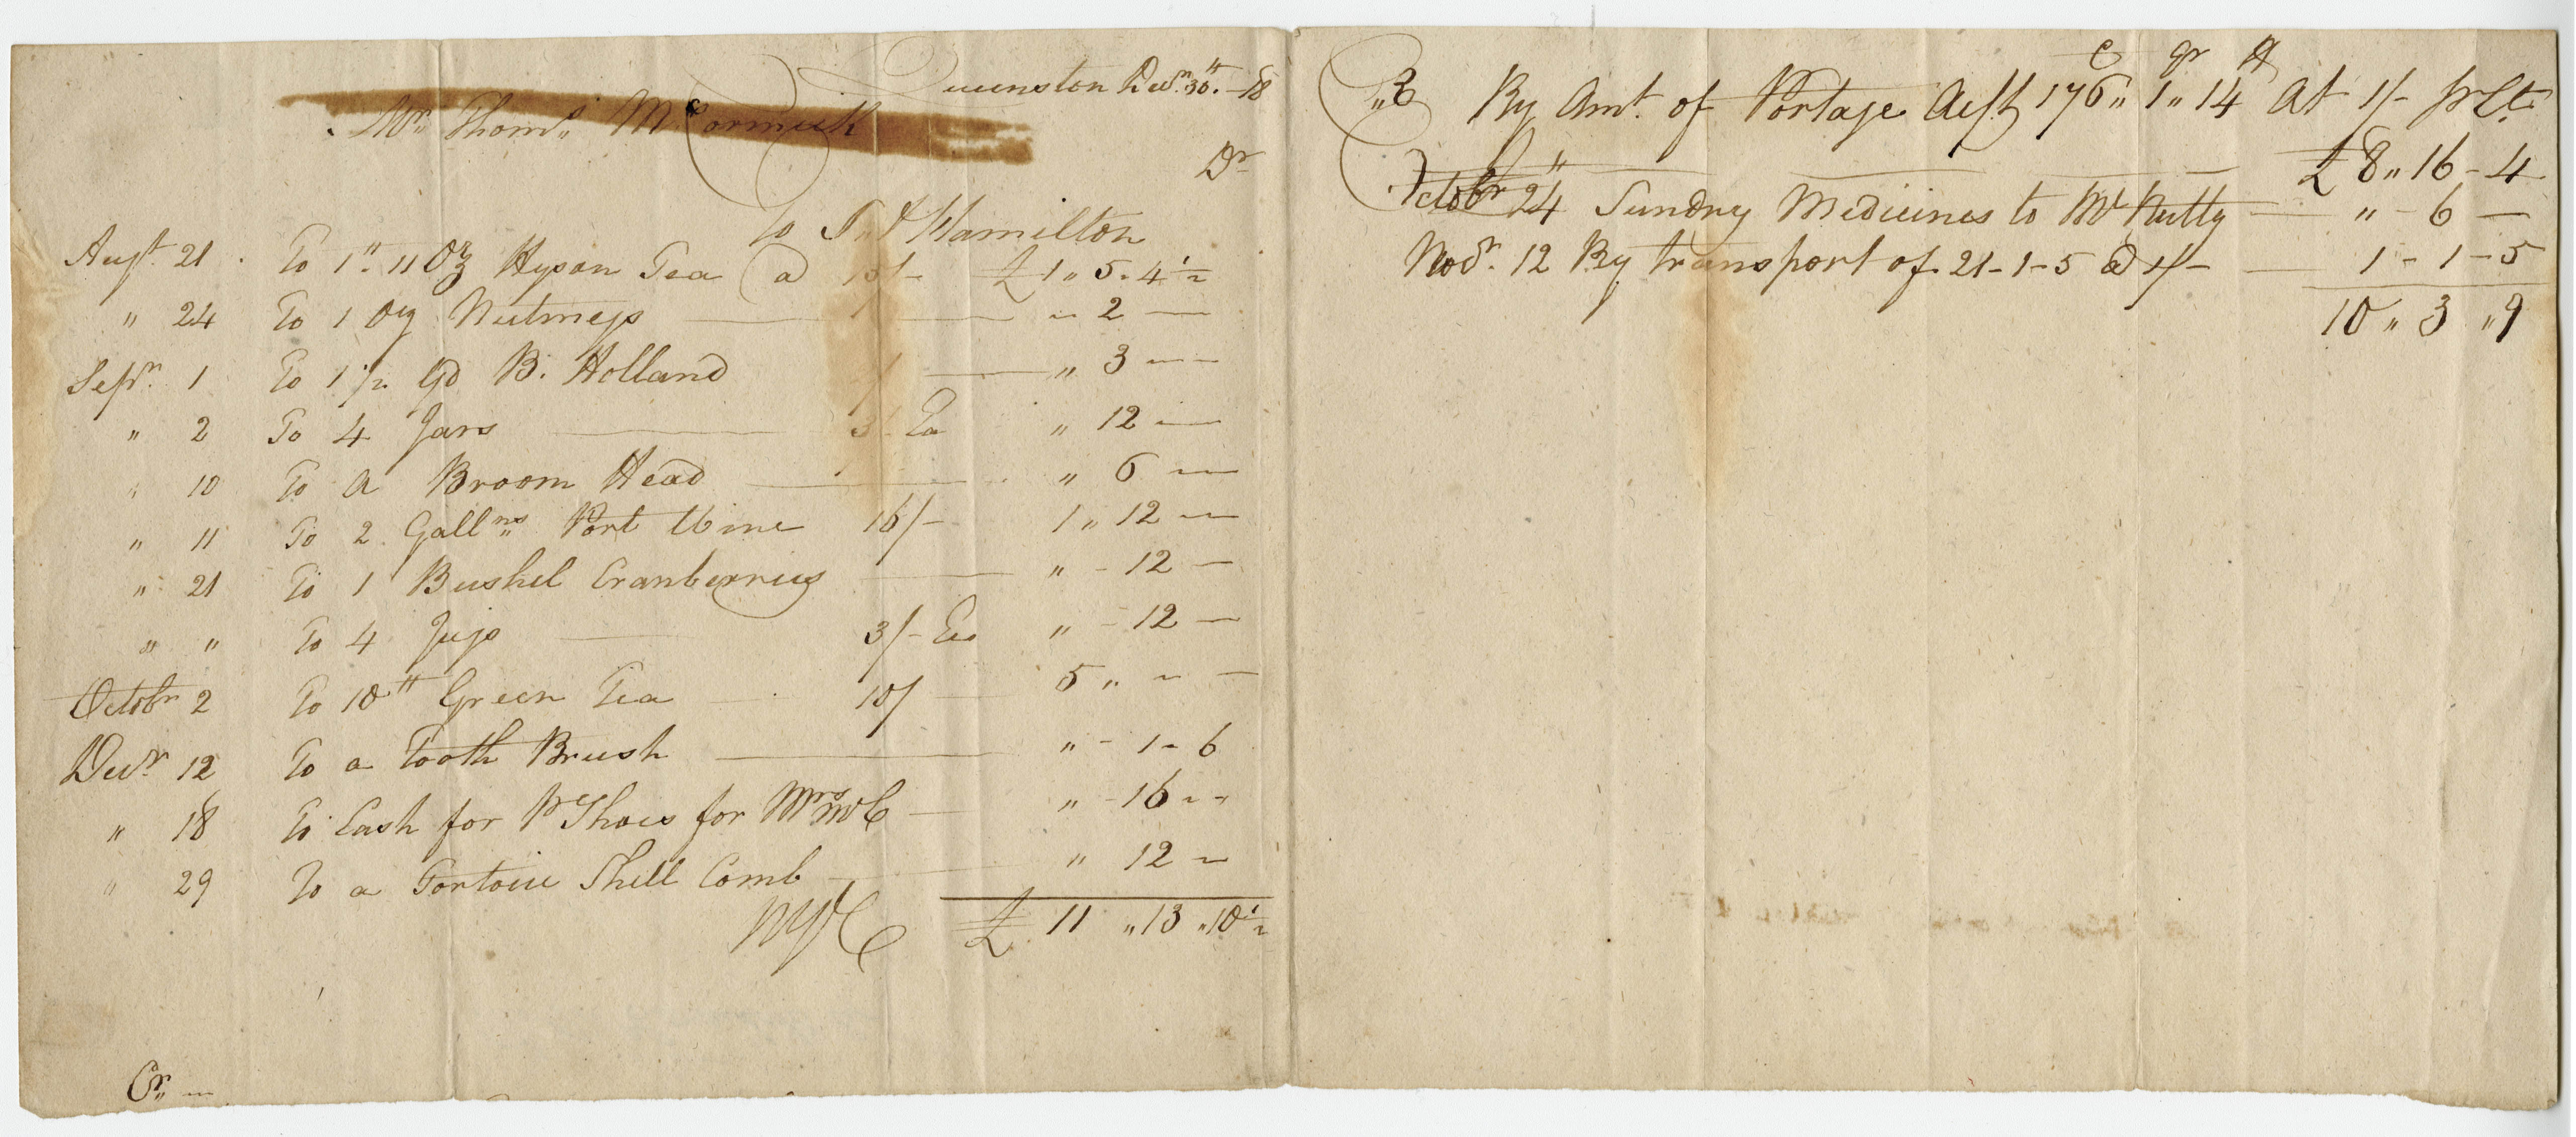 Queenston Decr. 30th. —18
Mr. Thoms. McCormick
Dr
To J & A Hamilton
Augt. 21 To 1 lb. 11 Oz Hyson Tea @ 15/- £ 1 " 5 - 4½
" 24 To 1 Oz Nutmegs — " 2 —
Sepr. 1 To 1½ Yd B. Holland — " 3 —
" 2 To 4 Jars — 3/ Ea " 12 —
" 10 To a Broom Head — " 6 —
" 11 To 2 Gallns. Port Wine 16/- 1 " 12 —
" 21 To 1 Bushel Cranberries — " - 12 —
" " To 4 Jugs — 3/- Ea " - 12 —
Octobr 2 To 10 lb Green Tea — 10/ — 5 " - —
Decr. 12 To a Tooth Brush — " - 1 - 6
" 18 To Cash for Pr Shoes for Mrs McC — " - 16 - -
" 29 To a Tortoise Shell Comb — " 12 —
£ 11 " 13 " 10½
Cr. —
By Amt. of Portage Acct 176 C " 1 qr " 14 lb At 1/- pr Ct.
£ 8 " 16 - 4
Octobr 24 Sundry Medicines to Mr Nutty — " - 6 —
Novr. 12 By transport of 21-1-5 @ 1/- — 1 - 1 - 5
10 " 3 " 9